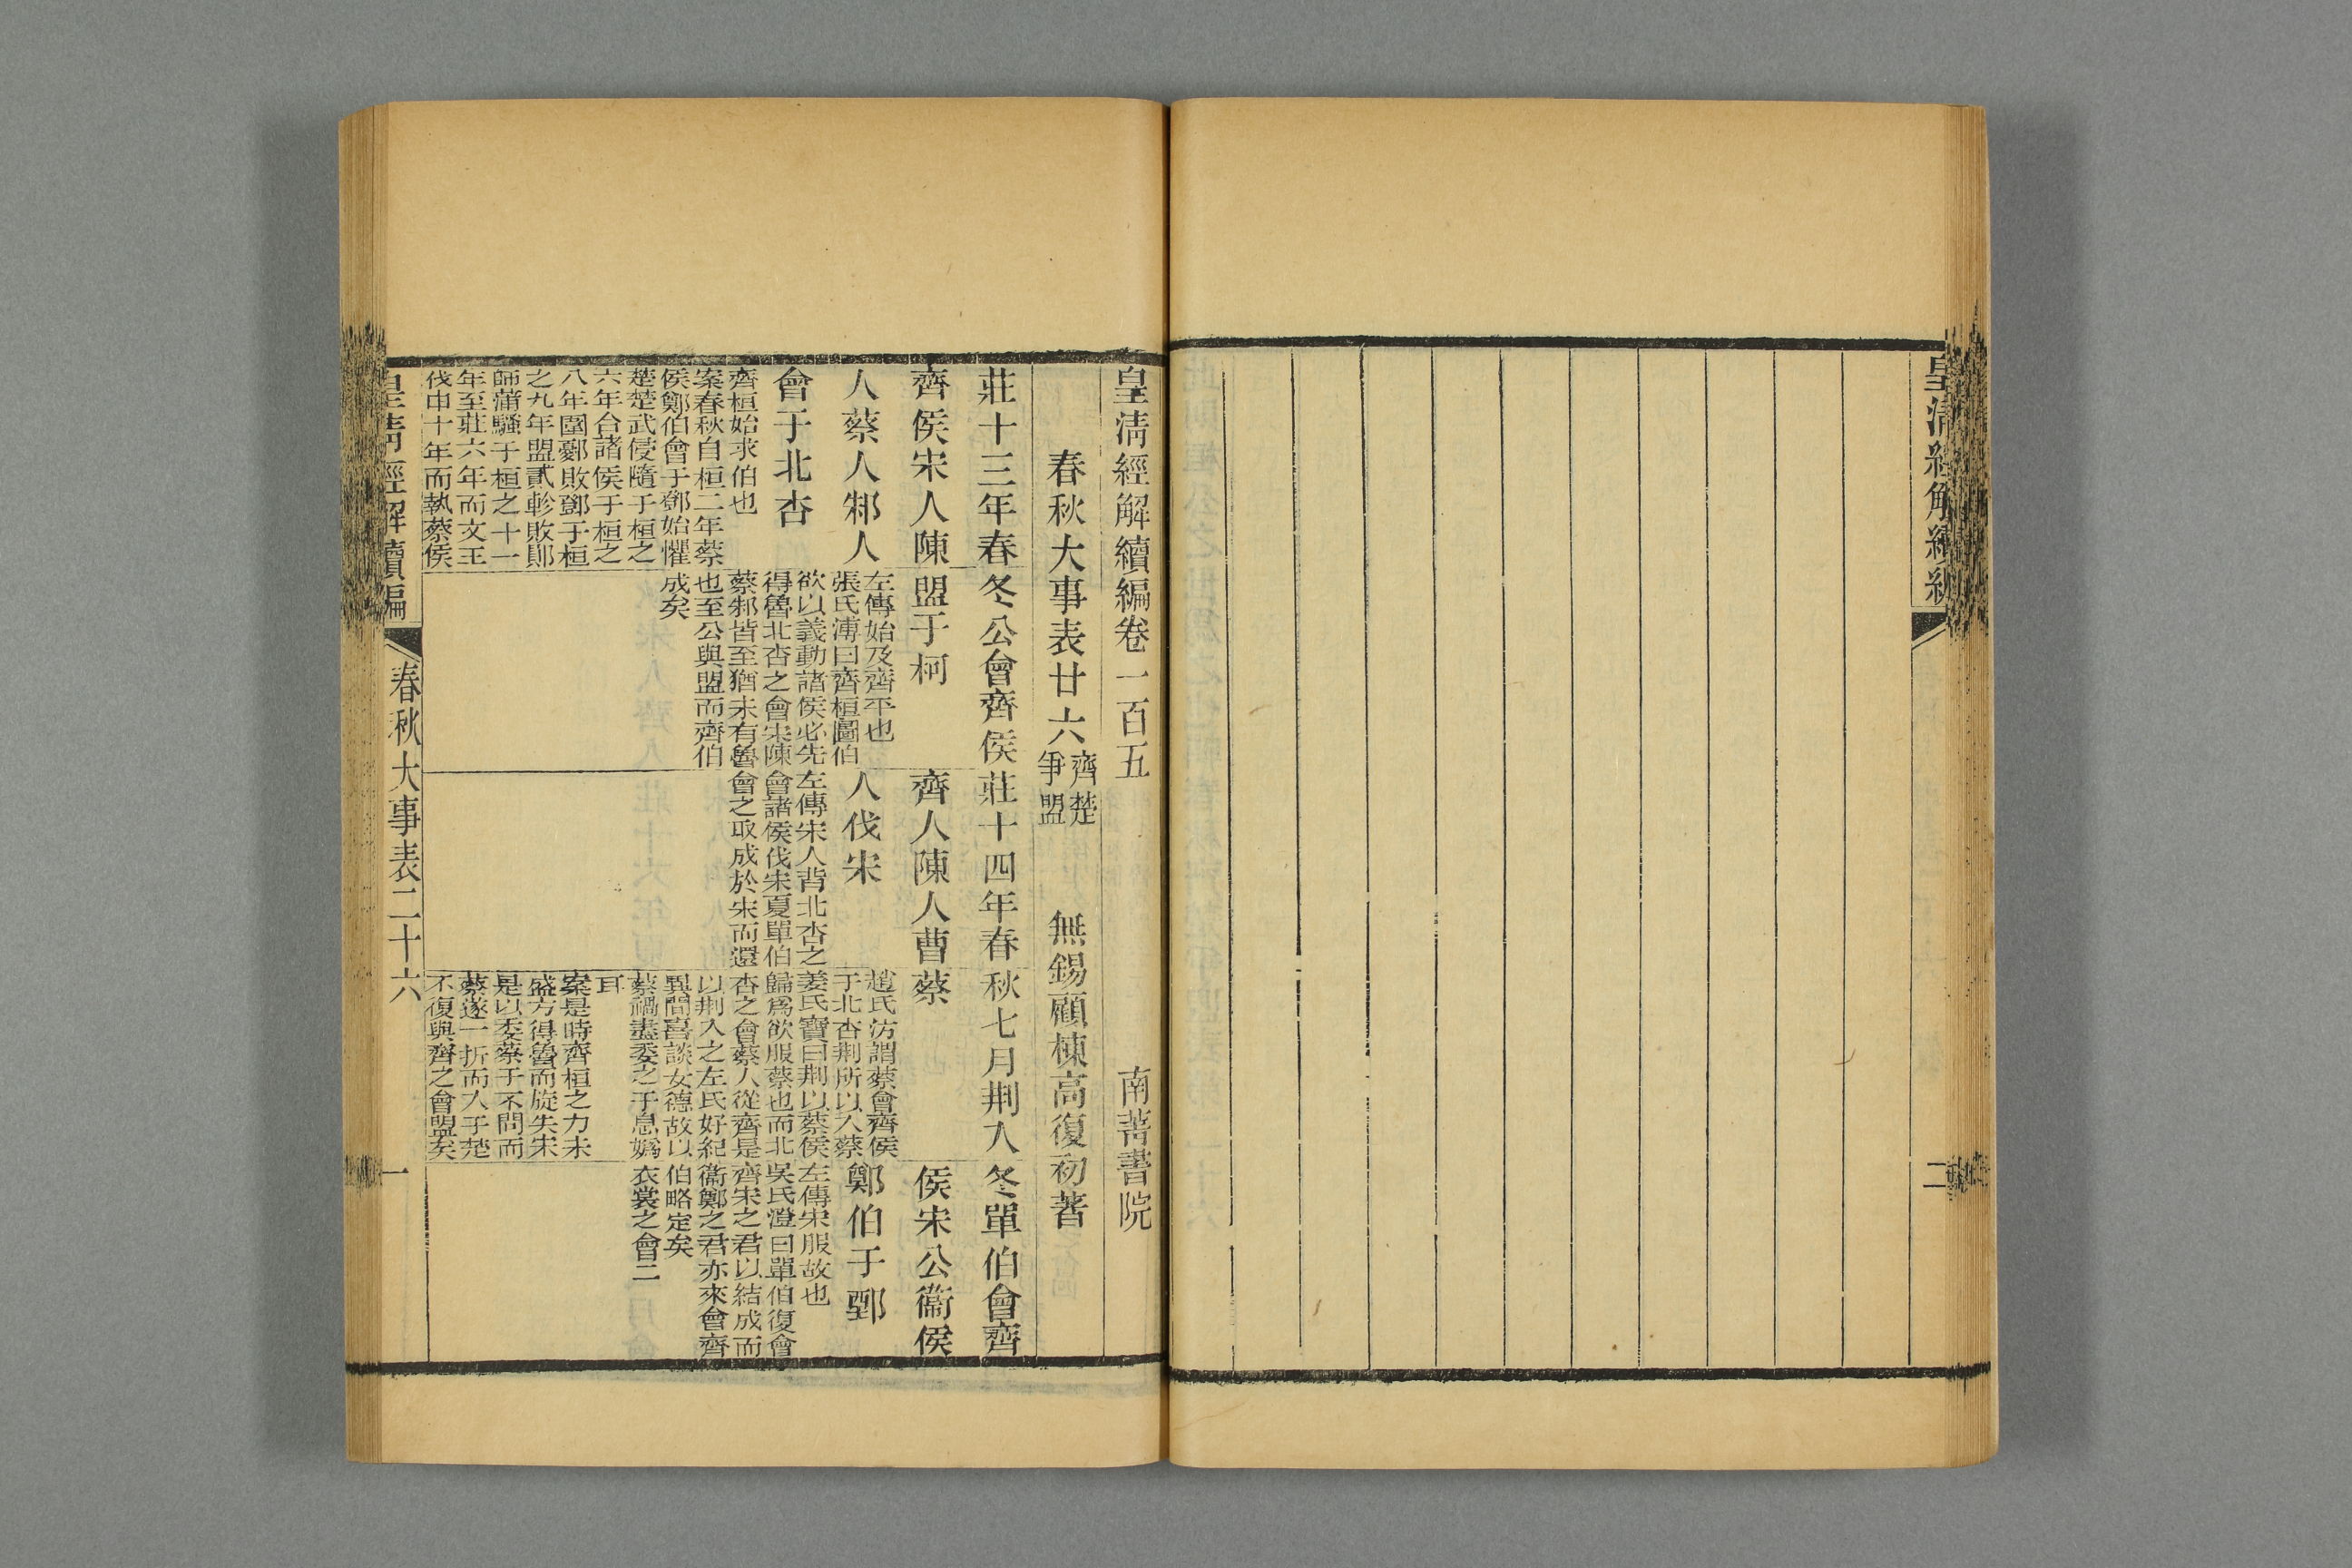 皇清經解續編
二
皇清經解續編卷一百五
南菁書院
春秋大事表廿六
齊楚
爭盟
無錫顧棟高復初著
莊十三年春
齊侯宋人陳
人蔡人邾人
會于北杏
齊桓始求伯也
案春秋自桓二年蔡
侯鄭伯會于鄧始懼
楚楚武侵隨于桓之
六年合諸侯于桓之
八年圍鄾敗鄧于桓
之九年盟貳軫敗鄖
師蒲騷于桓之十一
年至莊六年而文王
伐申十年而執蔡侯
冬公會齊侯
盟于柯
左傳始及齊平也
張氏溥曰齊桓圖伯
欲以義動諸侯必先
得魯北杏之會宋陳
蔡邾皆至猶未有魯
也至公與盟而齊伯
成矣
莊十四年春
齊人陳人曹
人伐宋
左傳宋人背北杏之
會諸侯伐宋夏單伯
會之取成於宋而還
秋七月荆入
蔡
趙氏汸謂蔡會齊侯
于北杏荆所以入蔡
姜氏寶曰荆以蔡侯
歸爲欲服蔡也而北
杏之會蔡人從齊是
以荆入之左氏好紀
異聞喜談女德故以
蔡禍盡委之于息媯
耳
案是時齊桓之力未
盛方得魯而旋失宋
是以委蔡于不問而
蔡遂一折而入于楚
不復與齊之會盟矣
冬單伯會齊
侯宋公衞侯
鄭伯于鄄
左傳宋服故也
吳氏澄曰單伯復會
齊宋之君以結成而
衞鄭之君亦來會齊
伯略定矣
衣裳之會二
皇清經解續編
春秋大事表二十六
一